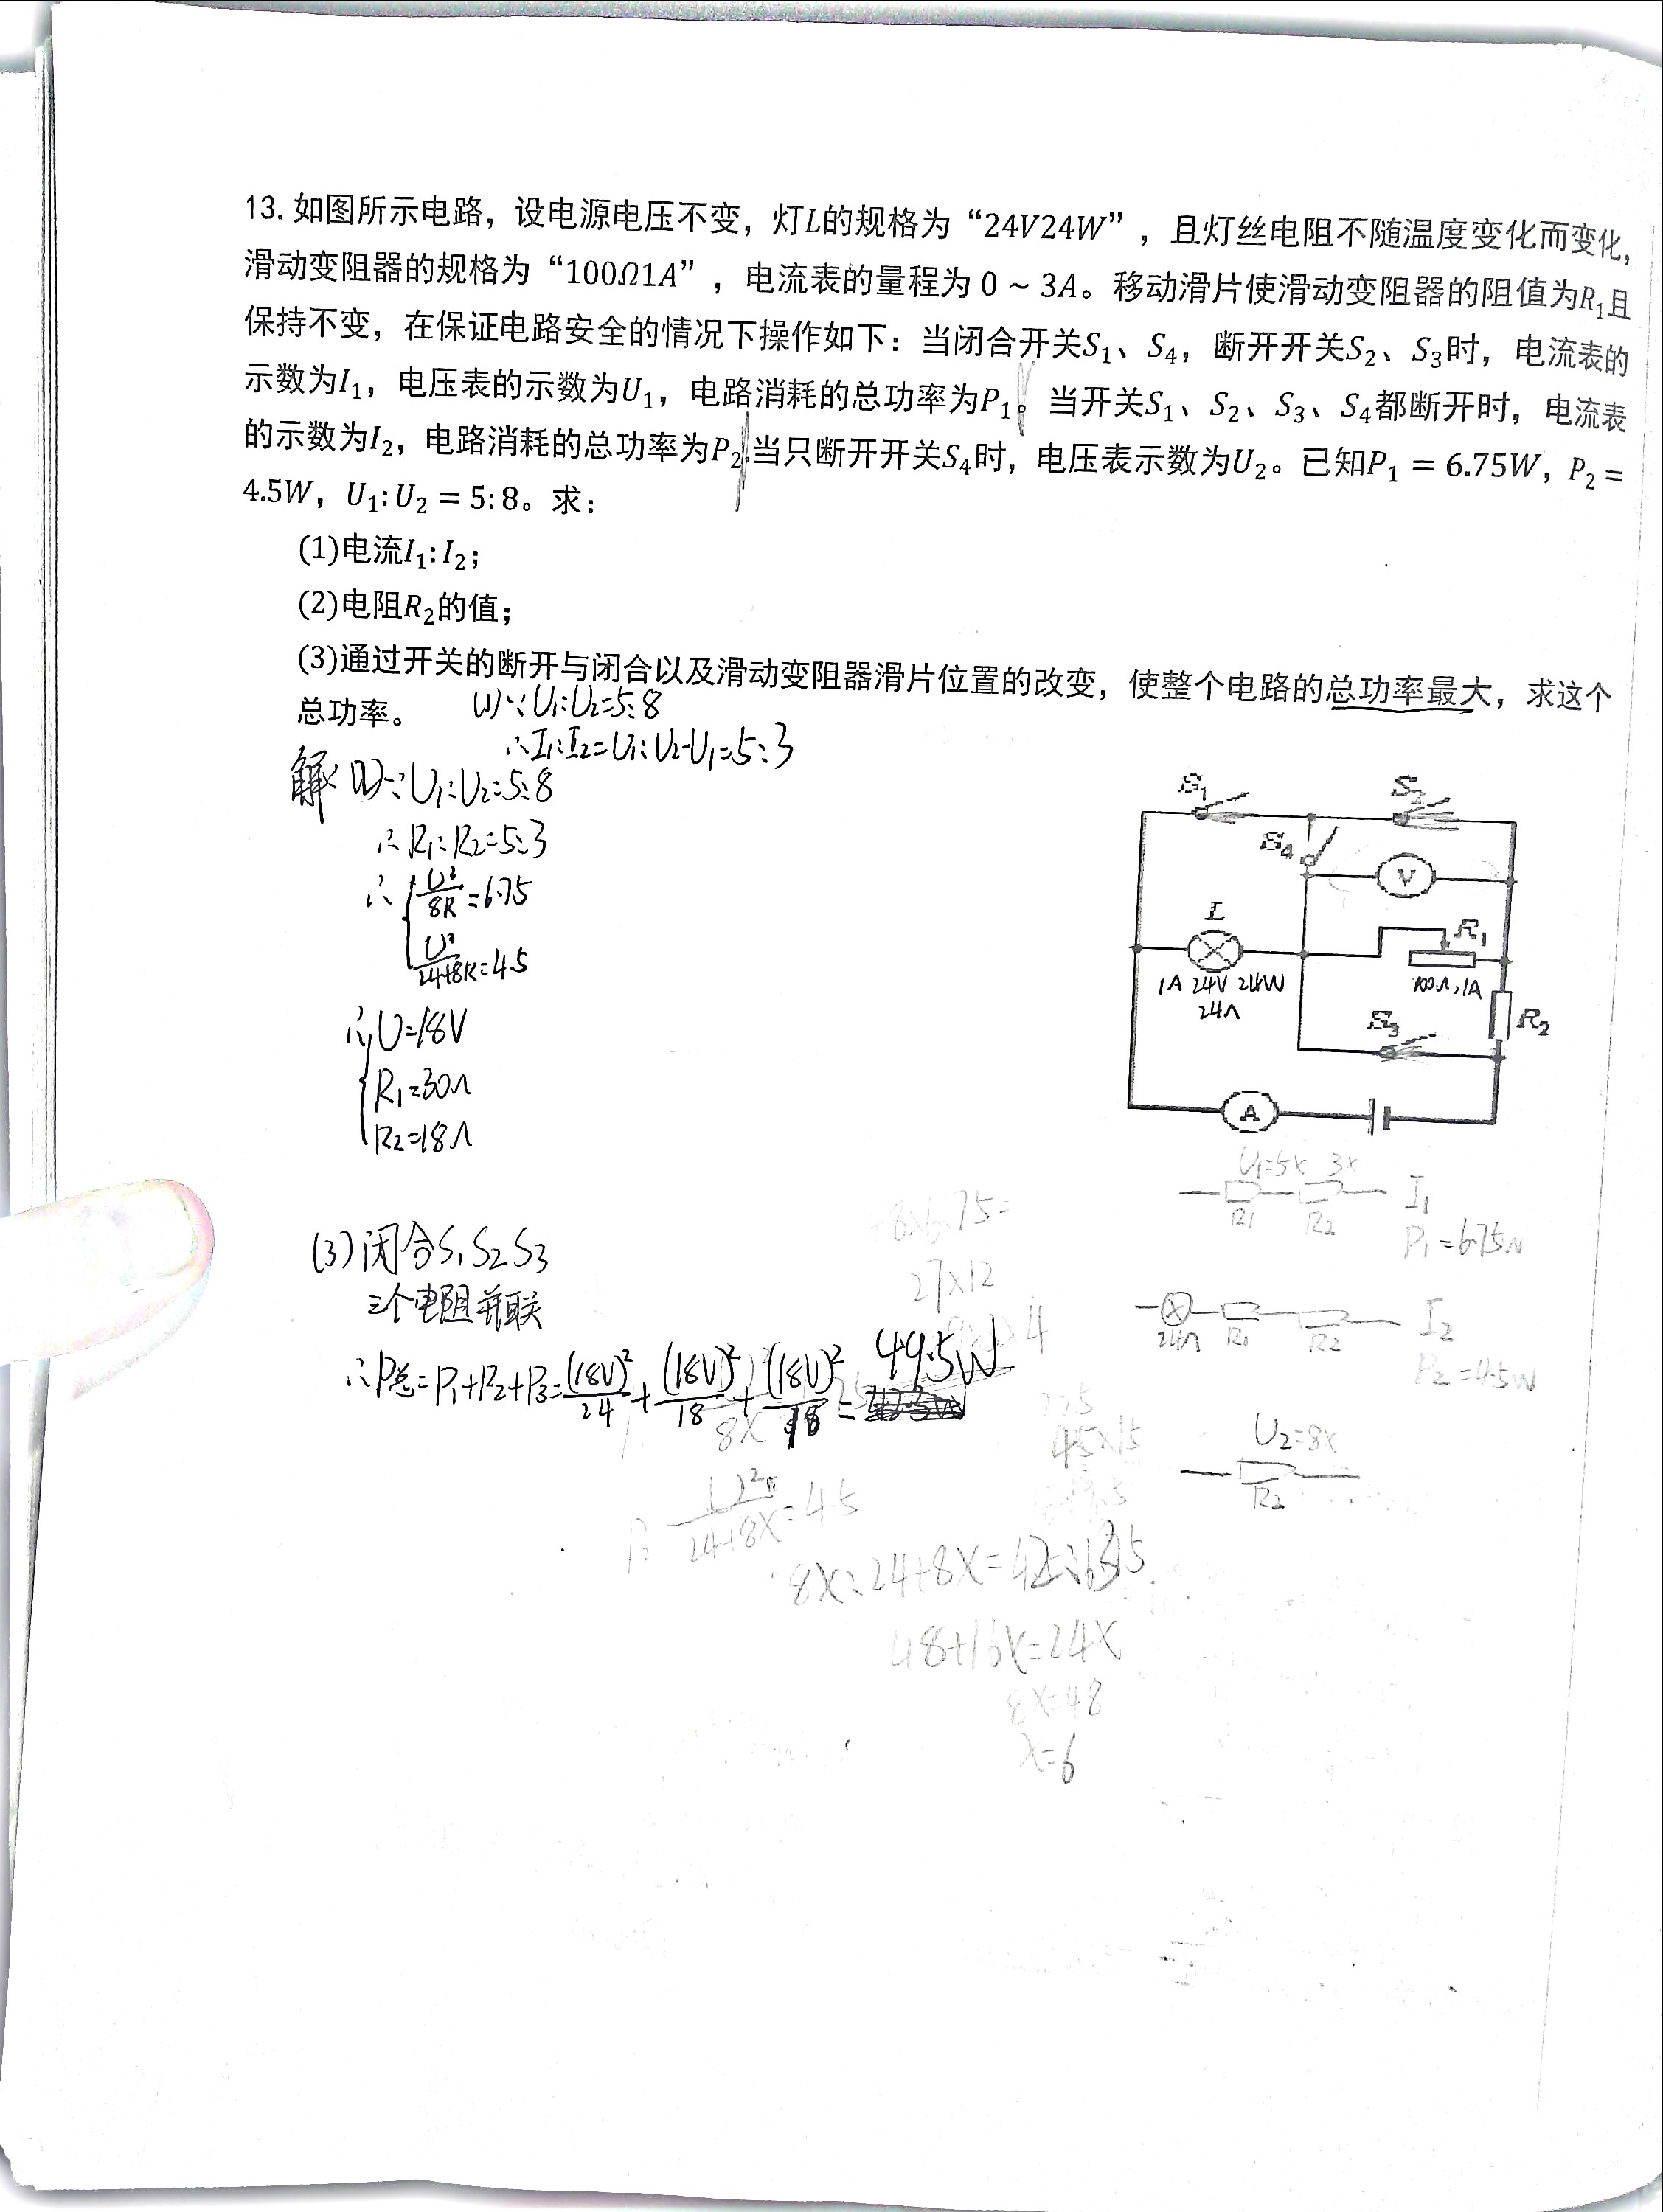 13. 如图所示电路，设电源电压不变，灯L的规格为“24V24W”，且灯丝电阻不随温度变化而变化，
滑动变阻器的规格为“100Ω1A”，电流表的量程为 0 ~ 3A。移动滑片使滑动变阻器的阻值为R₁且
保持不变，在保证电路安全的情况下操作如下：当闭合开关S₁、S₄，断开开关S₂、S₃时，电流表的
示数为I₁，电压表的示数为U₁，电路消耗的总功率为P₁。当开关S₁、S₂、S₃、S₄都断开时，电流表
的示数为I₂，电路消耗的总功率为P₂.当只断开开关S₄时，电压表示数为U₂。已知P₁ = 6.75W，P₂ =
4.5W，U₁: U₂ = 5: 8。求：
(1)电流I₁: I₂；
(2)电阻R₂的值；
(3)通过开关的断开与闭合以及滑动变阻器滑片位置的改变，使整个电路的总功率最大，求这个
总功率。
(1)∵U₁:U₂=5:8
∴I₁:I₂=U₁:U₂-U₁=5:3
解: (2)∵U₁:U₂=5:8
∴R₁:R₂=5:3
∴ U²/8R=6.75
U²/24+8R=4.5
∴U=18V
R₁=30Ω
R₂=18Ω
(3)闭合S₁S₂S₃
三个电阻并联
∴P总=P₁+P₂+P₃=(18V)²/24+(18V)²/18+(18V)²/18=49.5W
S₁
S₂
S₄
V
L
R₁
1A 24V 24W
24Ω
100Ω,1A
R₂
S₃
A
U₁=5x 3x
R₁ R₂ I₁
P₁=6.75W
24Ω R₁ R₂ I₂
P₂=4.5W
U₂=8x
R₂
8×6.75=
27×12
8X
45×15
U²/24+8X=4.5
48+16X=24X
8X=48
X=6